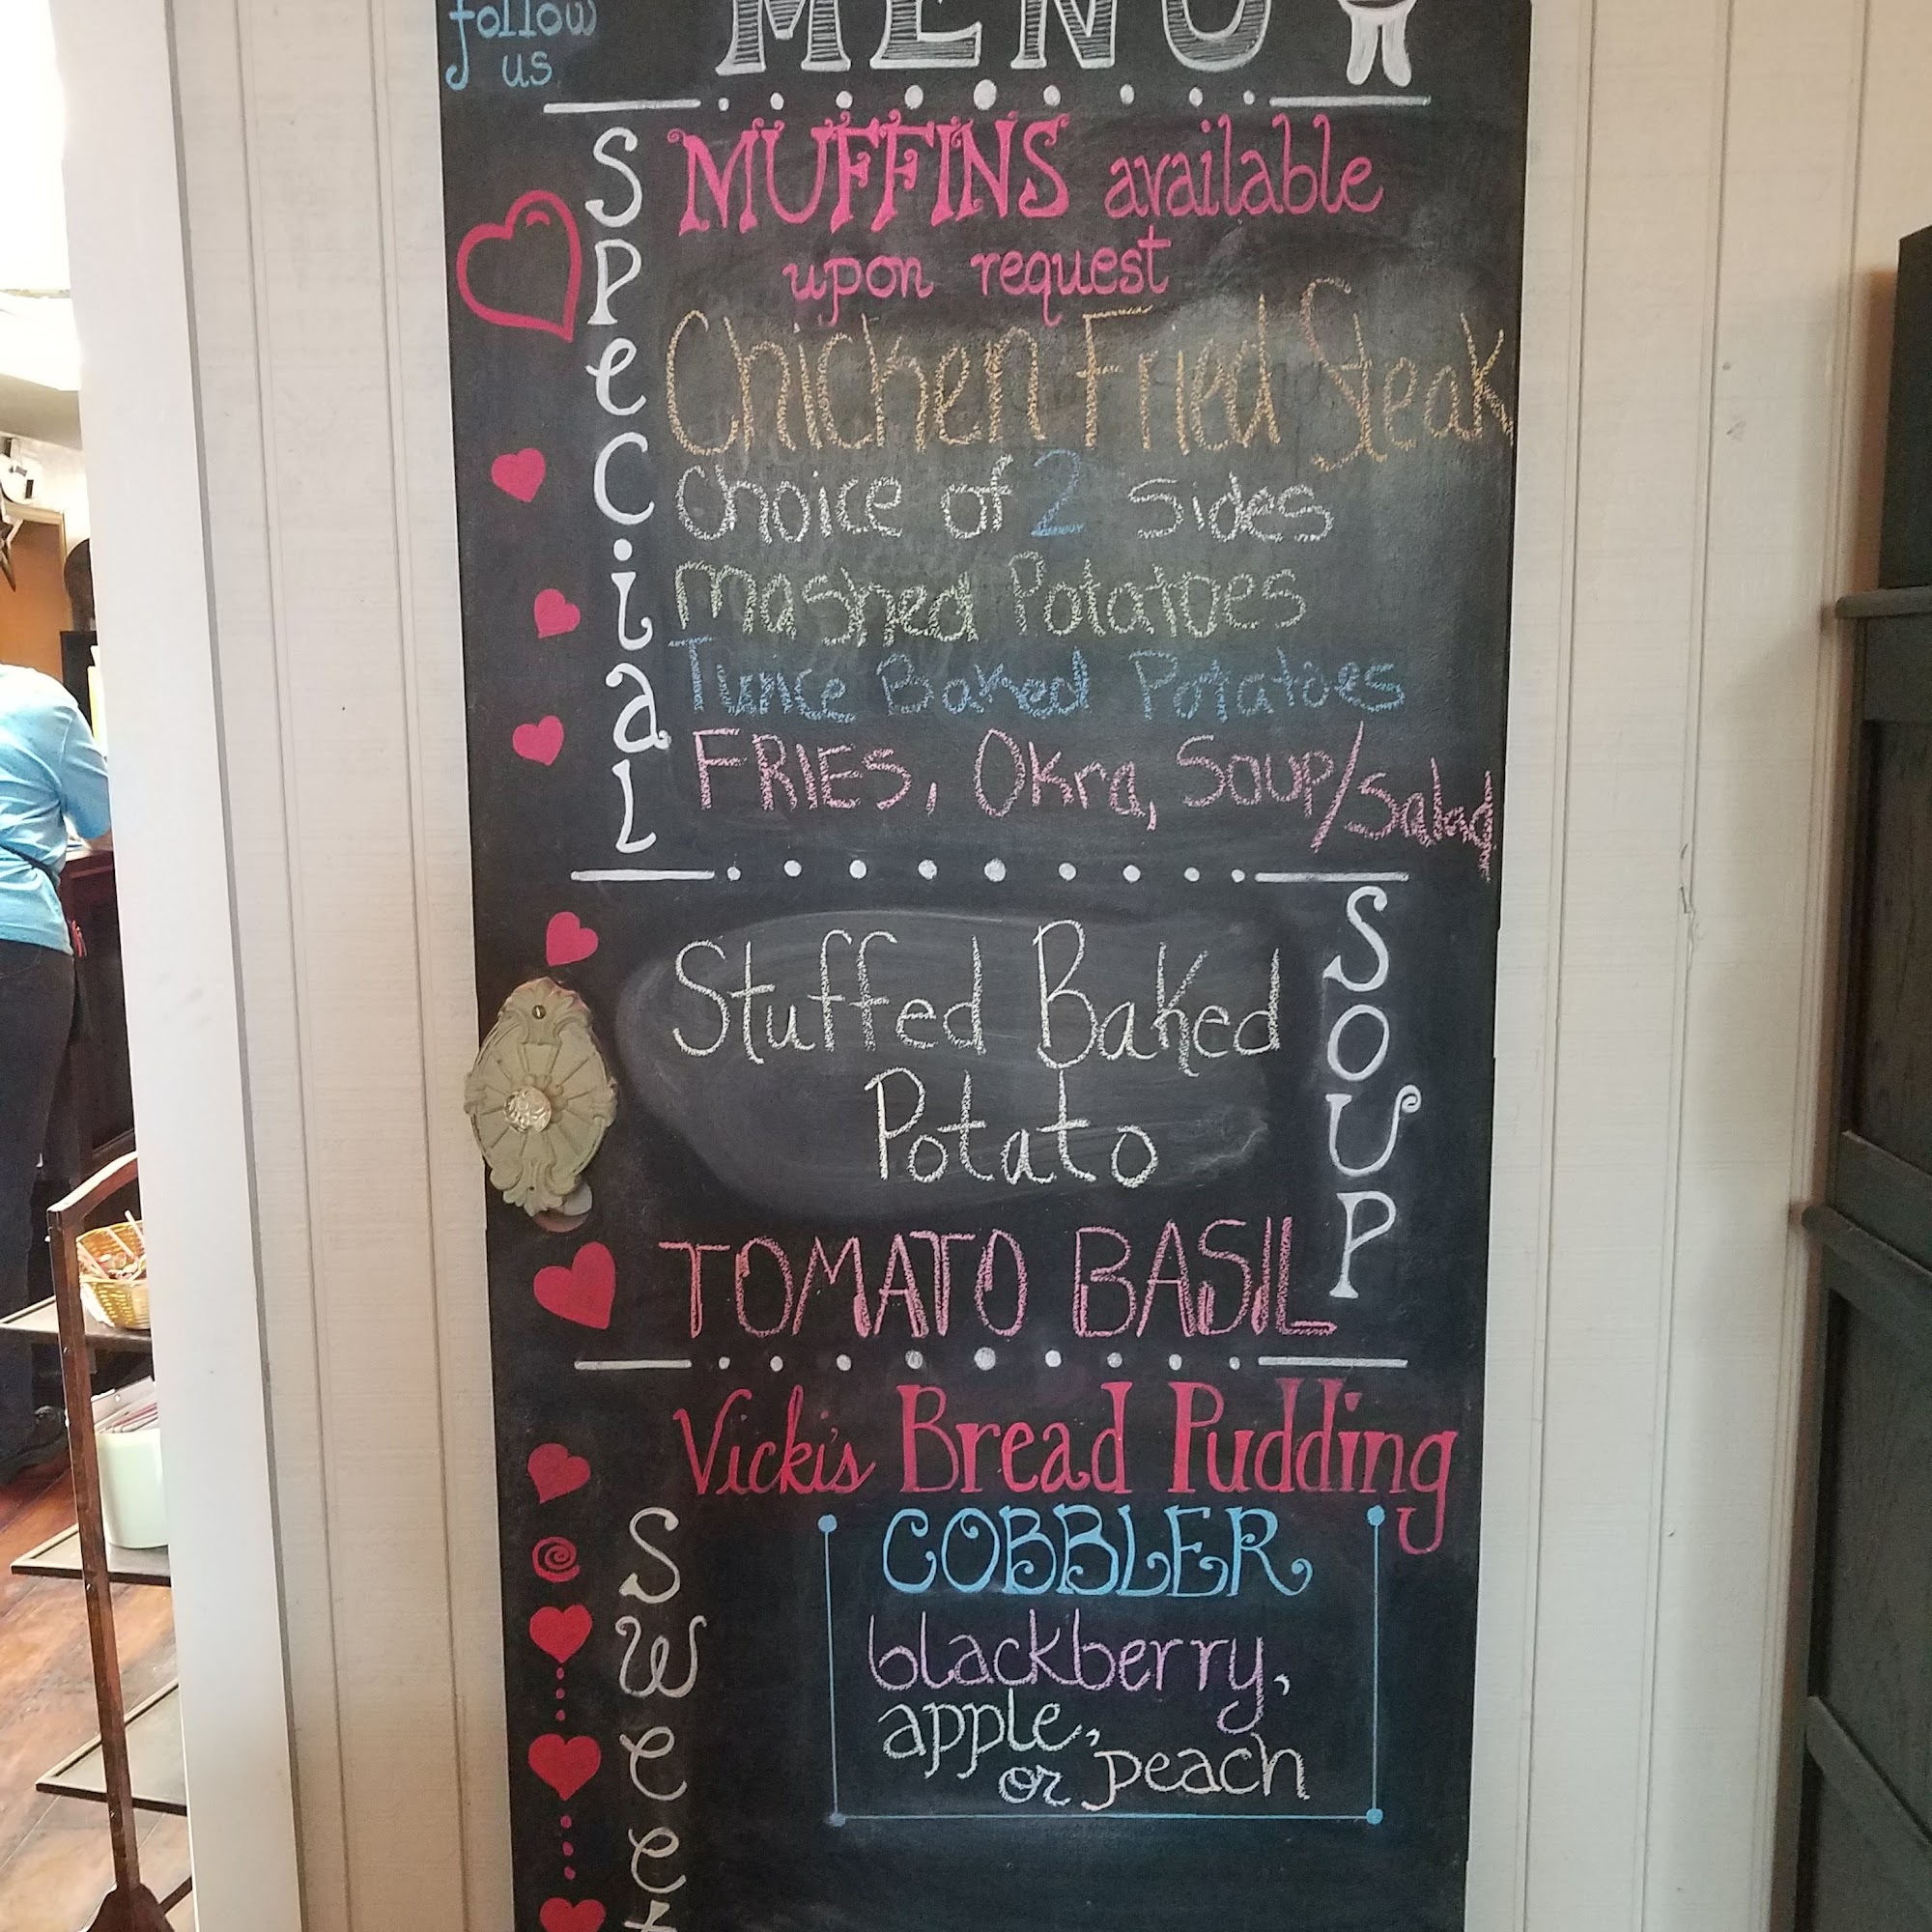 follow
us
MENU
Special
MUFFINS available
upon request
Chicken Fried Steak
Choice of 2 sides
mashed Potatoes
Twice Baked Potatoes
FRIES, Okra, Soup/Salad
SOUP
Stuffed Baked
Potato
TOMATO BASIL
Vicki's Bread Pudding
Sweet
COBBLER
blackberry,
apple,
or peach